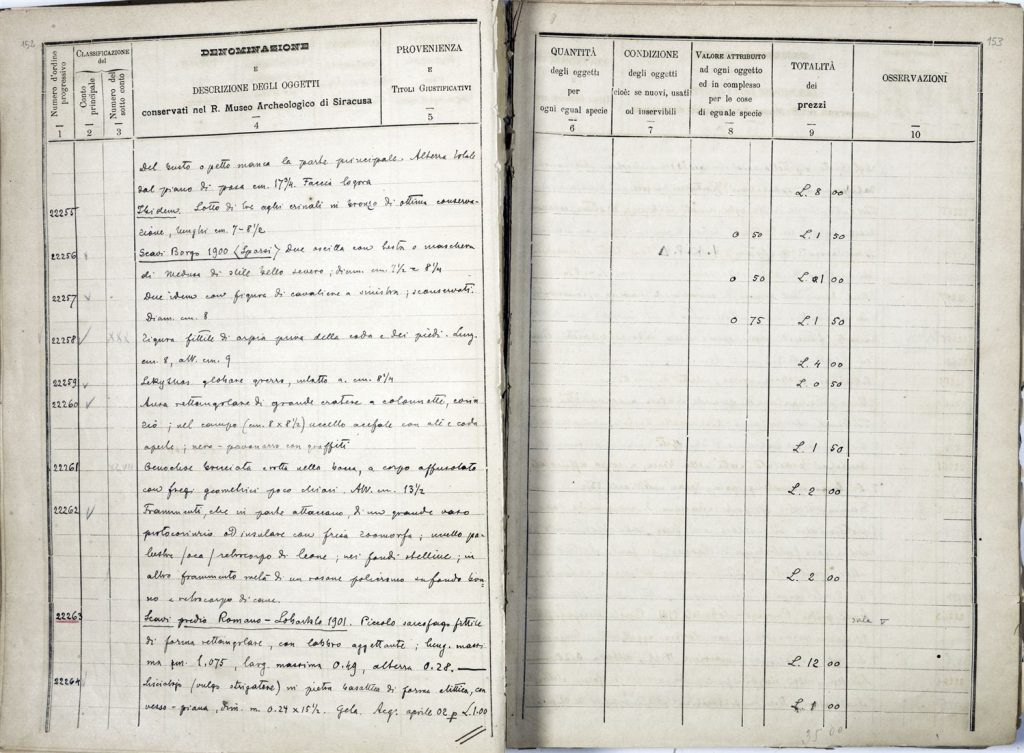 152
Numero d'ordine progressivo
CLASSIFICAZIONE del
Conto principale
Numero del sotto conto
DENOMINAZIONE
E
DESCRIZIONE DEGLI OGGETTI
conservati nel R. Museo Archeologico di Siracusa
PROVENIENZA
E
TITOLI GIUSTIFICATIVI
1 2 3 4 5
Del busto o petto manca la parte principale. Altezza totale
dal piano di posa cm. 17¾. Faccia logora
22255 Ibidem. Lotto di tre aghi crinali in bronzo di ottima conserva-
zione, lunghi cm. 7-8½
22256 Scavi Borgo 1900 (Sparsi) Due oscilla con testa o maschera
di Medusa di stile bello severo; diam. cm. 7½ e 8¼
22257 Due idem con figura di cavaliere a sinistra; sconservati.
Diam. cm. 8
22258 XXX Figura fittile di arpia priva della coda e dei piedi. Lung.
cm. 8, alt. cm. 9
22259 Lekythos globare grezzo, a. cm. 8¼
22260 Ansa rettangolare di grande cratere a colonnette, corin
zio; nel campo (cm. 8 x 8½) uccello acefale con ali e coda
aperte; nero-paonazzo con graffiti
22261 Oenochoe bruciata e rotta nella bocca, a corpo affusolato
con fregi geometrici poco chiari. Alt. cm. 13½
22262 Frammenti, che in parte attaccano, di un grande vaso
protocorinzio od insulare con fregi zoomorfa; uccello pa-
lustre (oca) retrocorpo di leone; nei fondi stelline; in
altro frammento metà di un rosone policromo su fondo bru-
no e retrocorpo di cane.
22263 Scavi predio Romano-Lobartolo 1901. Piccolo sarcofago fittile
di forma rettangolare, con labbro aggettante; lung. massi
ma cm. 1.075, larg. massima 0.49, altezza 0.28.
22264 (vulgo strigatore) in pietra basaltica di forma elittica, con
vesso-piana, Dim. m. 0.24 x 15½. Gela. Acq. aprile 02 p. L.1.00
153
QUANTITÀ
degli oggetti
per
ogni egual specie
CONDIZIONE
degli oggetti
cioè: se nuovi, usati
od inservibili
VALORE ATTRIBUTO
ad ogni oggetto
ed in complesso
per le cose
di eguale specie
TOTALITÀ
dei
prezzi
OSSERVAZIONI
6 7 8 9 10
L. 8 00
0 50 L. 1 50
0 50 L. 1 00
0 75 L. 1 50
L. 4 00
L. 0 50
L. 1 50
L. 2 00
L. 2 00
sala V
L. 12 00
L. 1 00
35 00